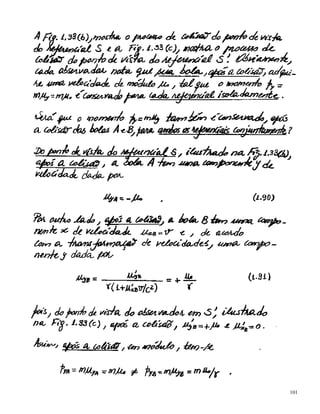 A Fig. 1.33(b), mostra o processo de colisão do ponto de vista
do referencial S e a Fig. 1.33(c), mostra o processo de
colisão do ponto de vista do referencial S'. Obviamente,
cada observador nota que sua bola, após a colisão, adqui-
re uma velocidade de módulo μ₀, tal que o momento p_y =
mμ_y = mμ₀ é conservado para cada referencial isoladamente.
Será que o momento p_y = mμ_y também é conservado, após
a colisão das bolas A e B, para ambos os referenciais conjuntamente?
Do ponto de vista do referencial S, ilustrado na Fig. 1.33(b),
após a colisão, a bola A tem uma componente y de
velocidade dada por
μ_yA = -μ₀ (1.90)
Por outro lado, após a colisão, a bola B tem uma compo-
nente x de velocidade μ_xB = v e, de acordo
com a transformação de velocidades, uma compo-
nente y dada por
μ_yB = μ'_yB / γ(1+μ'_xB v/c²) = + μ₀/γ (1.91)
pois, do ponto de vista do observador em S', ilustrado
na Fig. 1.33(c), após a colisão, μ'_yB = +μ₀ e μ'_xB = 0.
Assim, após a colisão, em módulo, tem-se
p_yA = mμ_yA = mμ₀ ≠ p_yB = mμ_yB = mμ₀/γ .
101